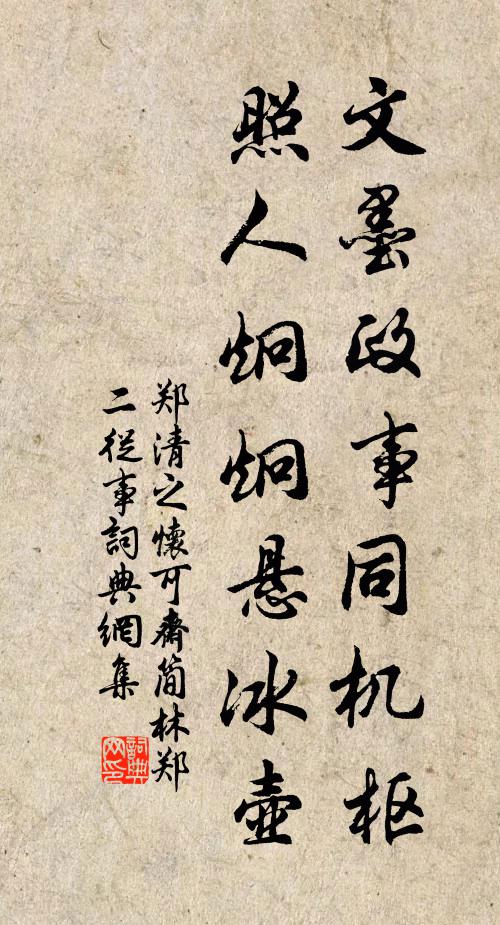 文墨政事同机枢
照人炯炯悬冰壶
郑清之懷可齋简林郑
二從事詞典網集
詞典網印